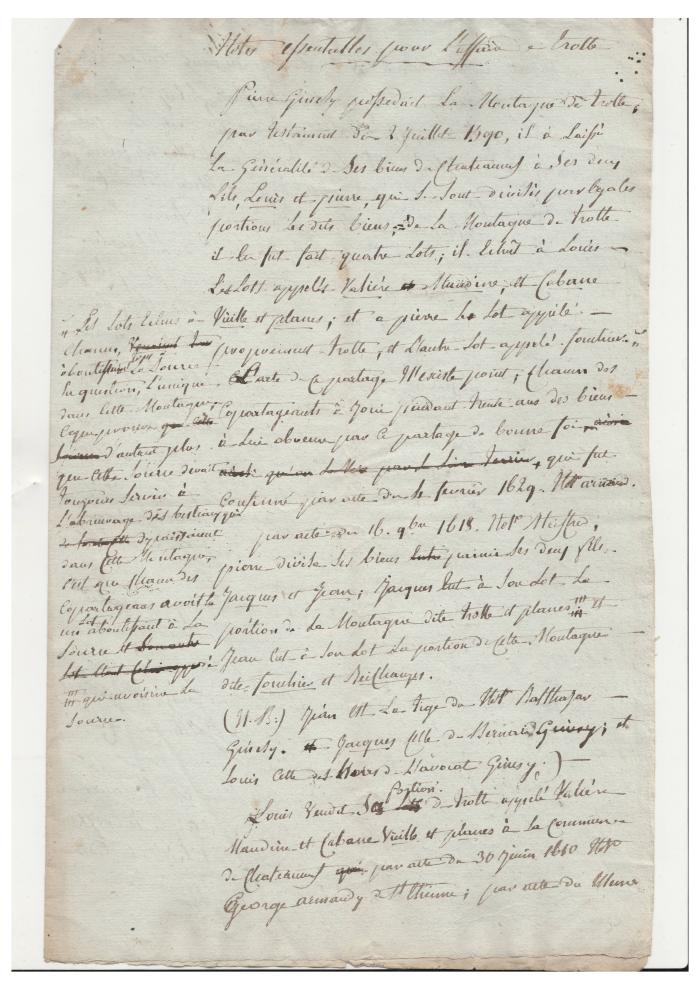 Notes essentielles pour l'affaire de trotte
Pierre Ginesy possedait La Montagne de trotte;
par testament du 2 Juillet 1590, il à Laissé
La Généralité de Ses biens de Chateauneuf à Ses deux
fils, Louis et pierre, qui Se Sont divisés par Egales
portions les dits biens; de La Montagne de trotte
il En fut fait quatre Lots; il Echût à Louis
Les Lots appellés Valière et Maudine, et Cabane
Vieille et planes; et a pierre le Lot appellé
proprement trotte, et L'autre Lot appelé fouchier.
L'acte de Ce partage N'existe point; Chacun des
Copartageants à Joui pendant trente ans des biens
à Lui obvenus par Ce partage de bonne foi,
qui fut
Confirmé par acte du 4 fevrier 1629. Not.re arnaud.
par acte du 16. 9bre 1618. Not.re
pierre divise Ses biens parmi Ses deux fils
Jacques et Jean; Jacques Eut à Son Lot La
portion de La Montagne dite trotte et planes et
Jean Eut à Son Lot La portion de Cette Montagne
dite fouchier et
(N.B.) Jean Est La tige du Not.re Balthazar
Ginesy. Jacques Celle de Bernard Ginesy; et
Louis Celle des Hoirs de L'avocat Ginesy.)
Louis Vendit Sa portion de trotte appellé Valière
Maudine et Cabane Vieille et planes à la Commune
de Chateauneuf par acte du 30 Juin 1610 Not.re
George armandy de St Etienne; par acte du Meme
" Les Lots Echus à
Chacun,
aboutissent à La Source
En question, L'unique
dans Cette Montagne,
Ce qui prouve
d'autant plus
que Cette Source devait
toujours Servir à
L'abreuvage des bestiaux qui
depaissaient
dans Cette Montagne,
C'est que Chacun des
Copartageans avoit Le
un Lot aboutissant à La
Source et
qui avoisine La
Source.